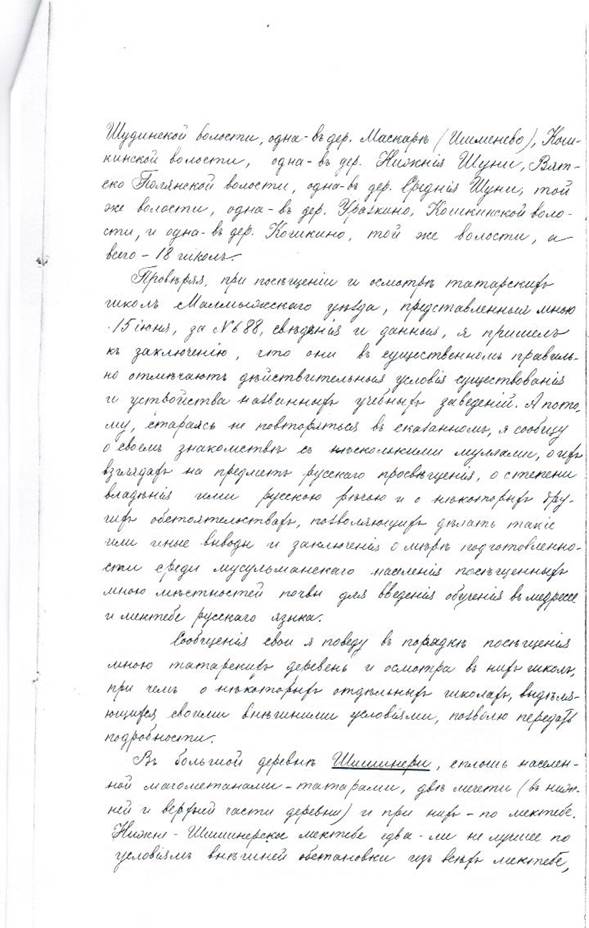 Шудинской волости, одна - въ дер. Маскарѣ (Ишменево), Кош-
кинской волости, одна - въ дер. Нижнія Шуни, Вят-
ско Полянской волости, одна - въ дер. Среднія Шуни, той
же волости, одна - въ дер. Уразкино, Кошкинской воло-
сти, и одна - въ дер. Кошкино, той же волости, а
всего - 18 школъ.
Провѣряя, при посѣщеніи и осмотрѣ татарскихъ
школъ Малмыжскаго уѣзда, представленныя мною
15 іюня, за № 688, свѣдѣнія и данныя, я пришелъ
къ заключенію, что они въ существенномъ правиль-
но отмѣчаютъ дѣйствительныя условія существованія
и устройства названныхъ учебныхъ заведеній. А пото-
му, стараясь не повторяться въ сказанномъ, я сообщу
о своемъ знакомствѣ съ нѣсколькими муллами, о ихъ
взглядахъ на предметъ русскаго просвѣщенія, о степени
владѣнія ими русскою рѣчью и о нѣкоторыхъ дру-
гихъ обстоятельствахъ, позволяющихъ дѣлать такіе
или иные выводы и заключенія о мѣрѣ подготовленно-
сти среди мусульманскаго населенія посѣщенныхъ
мною мѣстностей почвы для введенія обученія въ медрессе
и мектебе русскаго языка.
Сообщенія свои я поведу въ порядкѣ посѣщенія
мною татарскихъ деревень и осмотра въ нихъ школъ,
при чемъ о нѣкоторыхъ отдѣльныхъ школахъ, выдѣля-
ющихся своими внѣшними условіями, позволю передать
подробности.
Въ большой деревнѣ Шишинери, сплошь населен-
ной магометанами - татарами, двѣ мечети (въ ниж-
ней и верхней части деревни) и при нихъ - по мектебе.
Нижне - Шишинерское мектебе едва - ли не лучшее по
условіямъ внѣшней обстановки изъ всѣхъ мектебе,